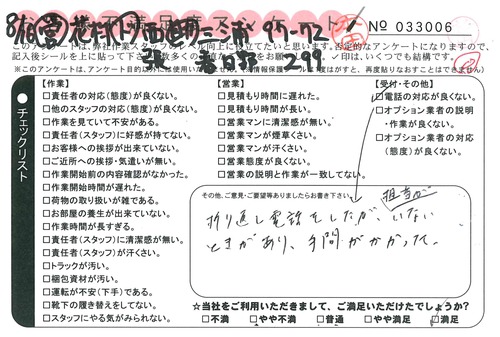 Nº 033006
このアンケートは、弊社作業スタッフのレベル向上に役立てたいと思います。否定的なアンケートになりますので、
記入後シールを上に貼って下さい。
印は、いくつでも結構です。
チェックリスト
【作業】
□責任者の対応(態度)が良くない。
□他のスタッフの対応(態度)が良くない。
□作業を見ていて不安がある。
□責任者(スタッフ)に好感が持てない。
□お客様への挨拶が出来ていない。
□ご近所への挨拶・気遣いが無い。
□作業開始前の内容確認がなかった。
□作業開始時間が遅れた。
□荷物の取り扱いが雑である。
□お部屋の養生が出来ていない。
□作業時間が長すぎる。
□責任者(スタッフ)に清潔感が無い。
□責任者(スタッフ)が汗くさい。
□トラックが汚い。
□梱包資材が汚い。
□運転が不安(下手)である。
□靴下の履き替えをしてない。
□スタッフにやる気がみられない。
【営業】
□見積もり時間に遅れた。
□見積もり時間が長い。
□営業マンに清潔感が無い。
□営業マンが煙草くさい。
□営業マンが汗くさい。
□営業態度が良くない。
□営業の説明と作業が一致してない。
【受付・その他】
□電話の対応が良くない。
□オプション業者の説明
・作業が良くない。
□オプション業者の対応
(態度)が良くない。
その他、ご意見・ご要望等ありましたらお書き下さい。
担当が
折り返し電話をしたが、いない
ときがあり、手間がかかった。
☆当社をご利用いただきまして、ご満足いただけたでしょうか?
□不満 □やや不満 □普通 □やや満足 □満足